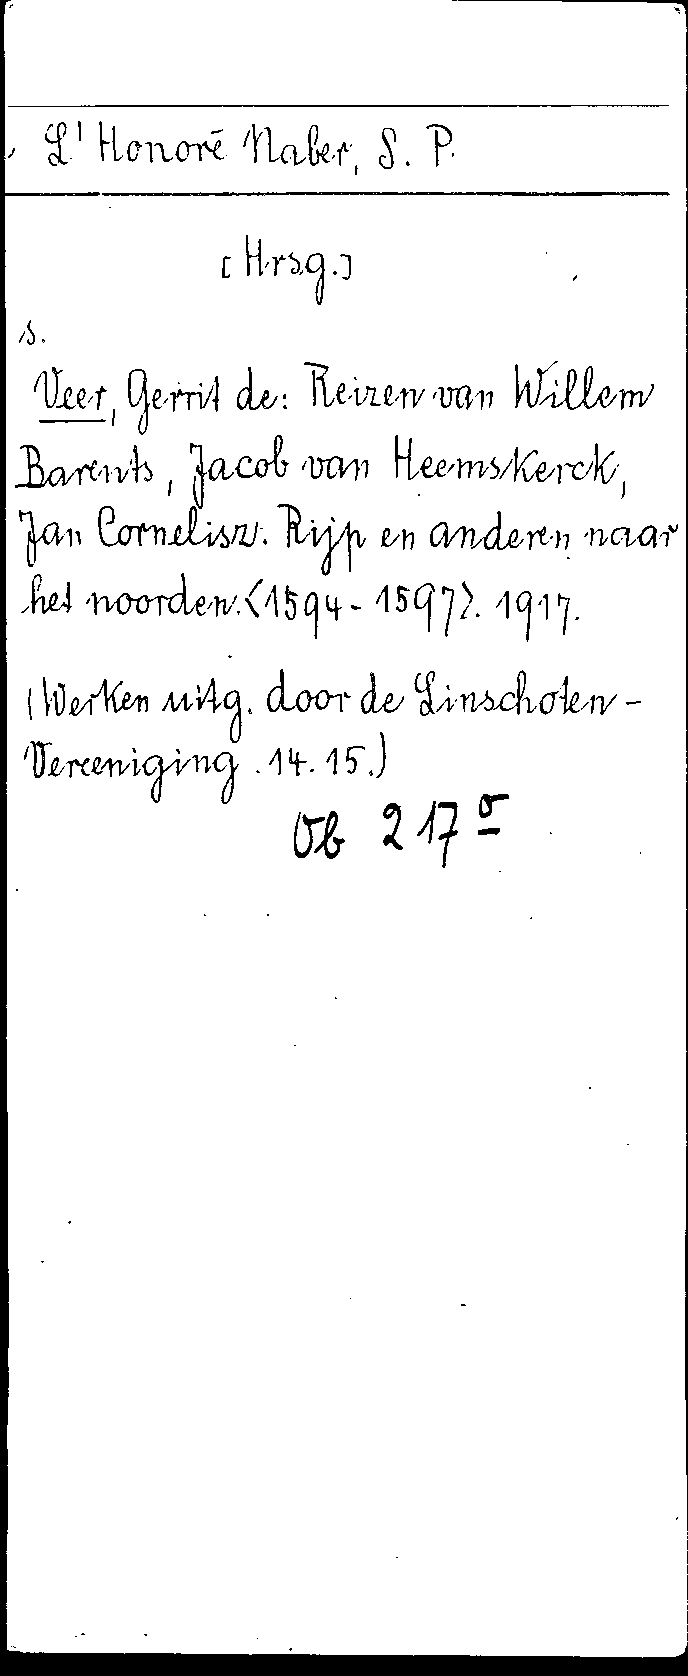 L'Honoré Naber, S. P.
[Hrsg.]
s.
Veer, Gerrit de: Reizen van Willem
Barents, Jacob van Heemskerck,
Jan Cornelisz. Rijp en anderen naar
het noorden.<1594-1597>. 1917.
(Werken uitg. door de Linschoten-
Vereeniging. 14. 15.)
Ob 217 σ